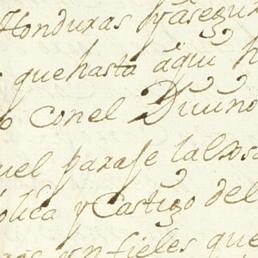 Honduras y asegur
que hasta aqui h
o con el Divino
uel paraje la cosa
olica y Castigo del
infieles que